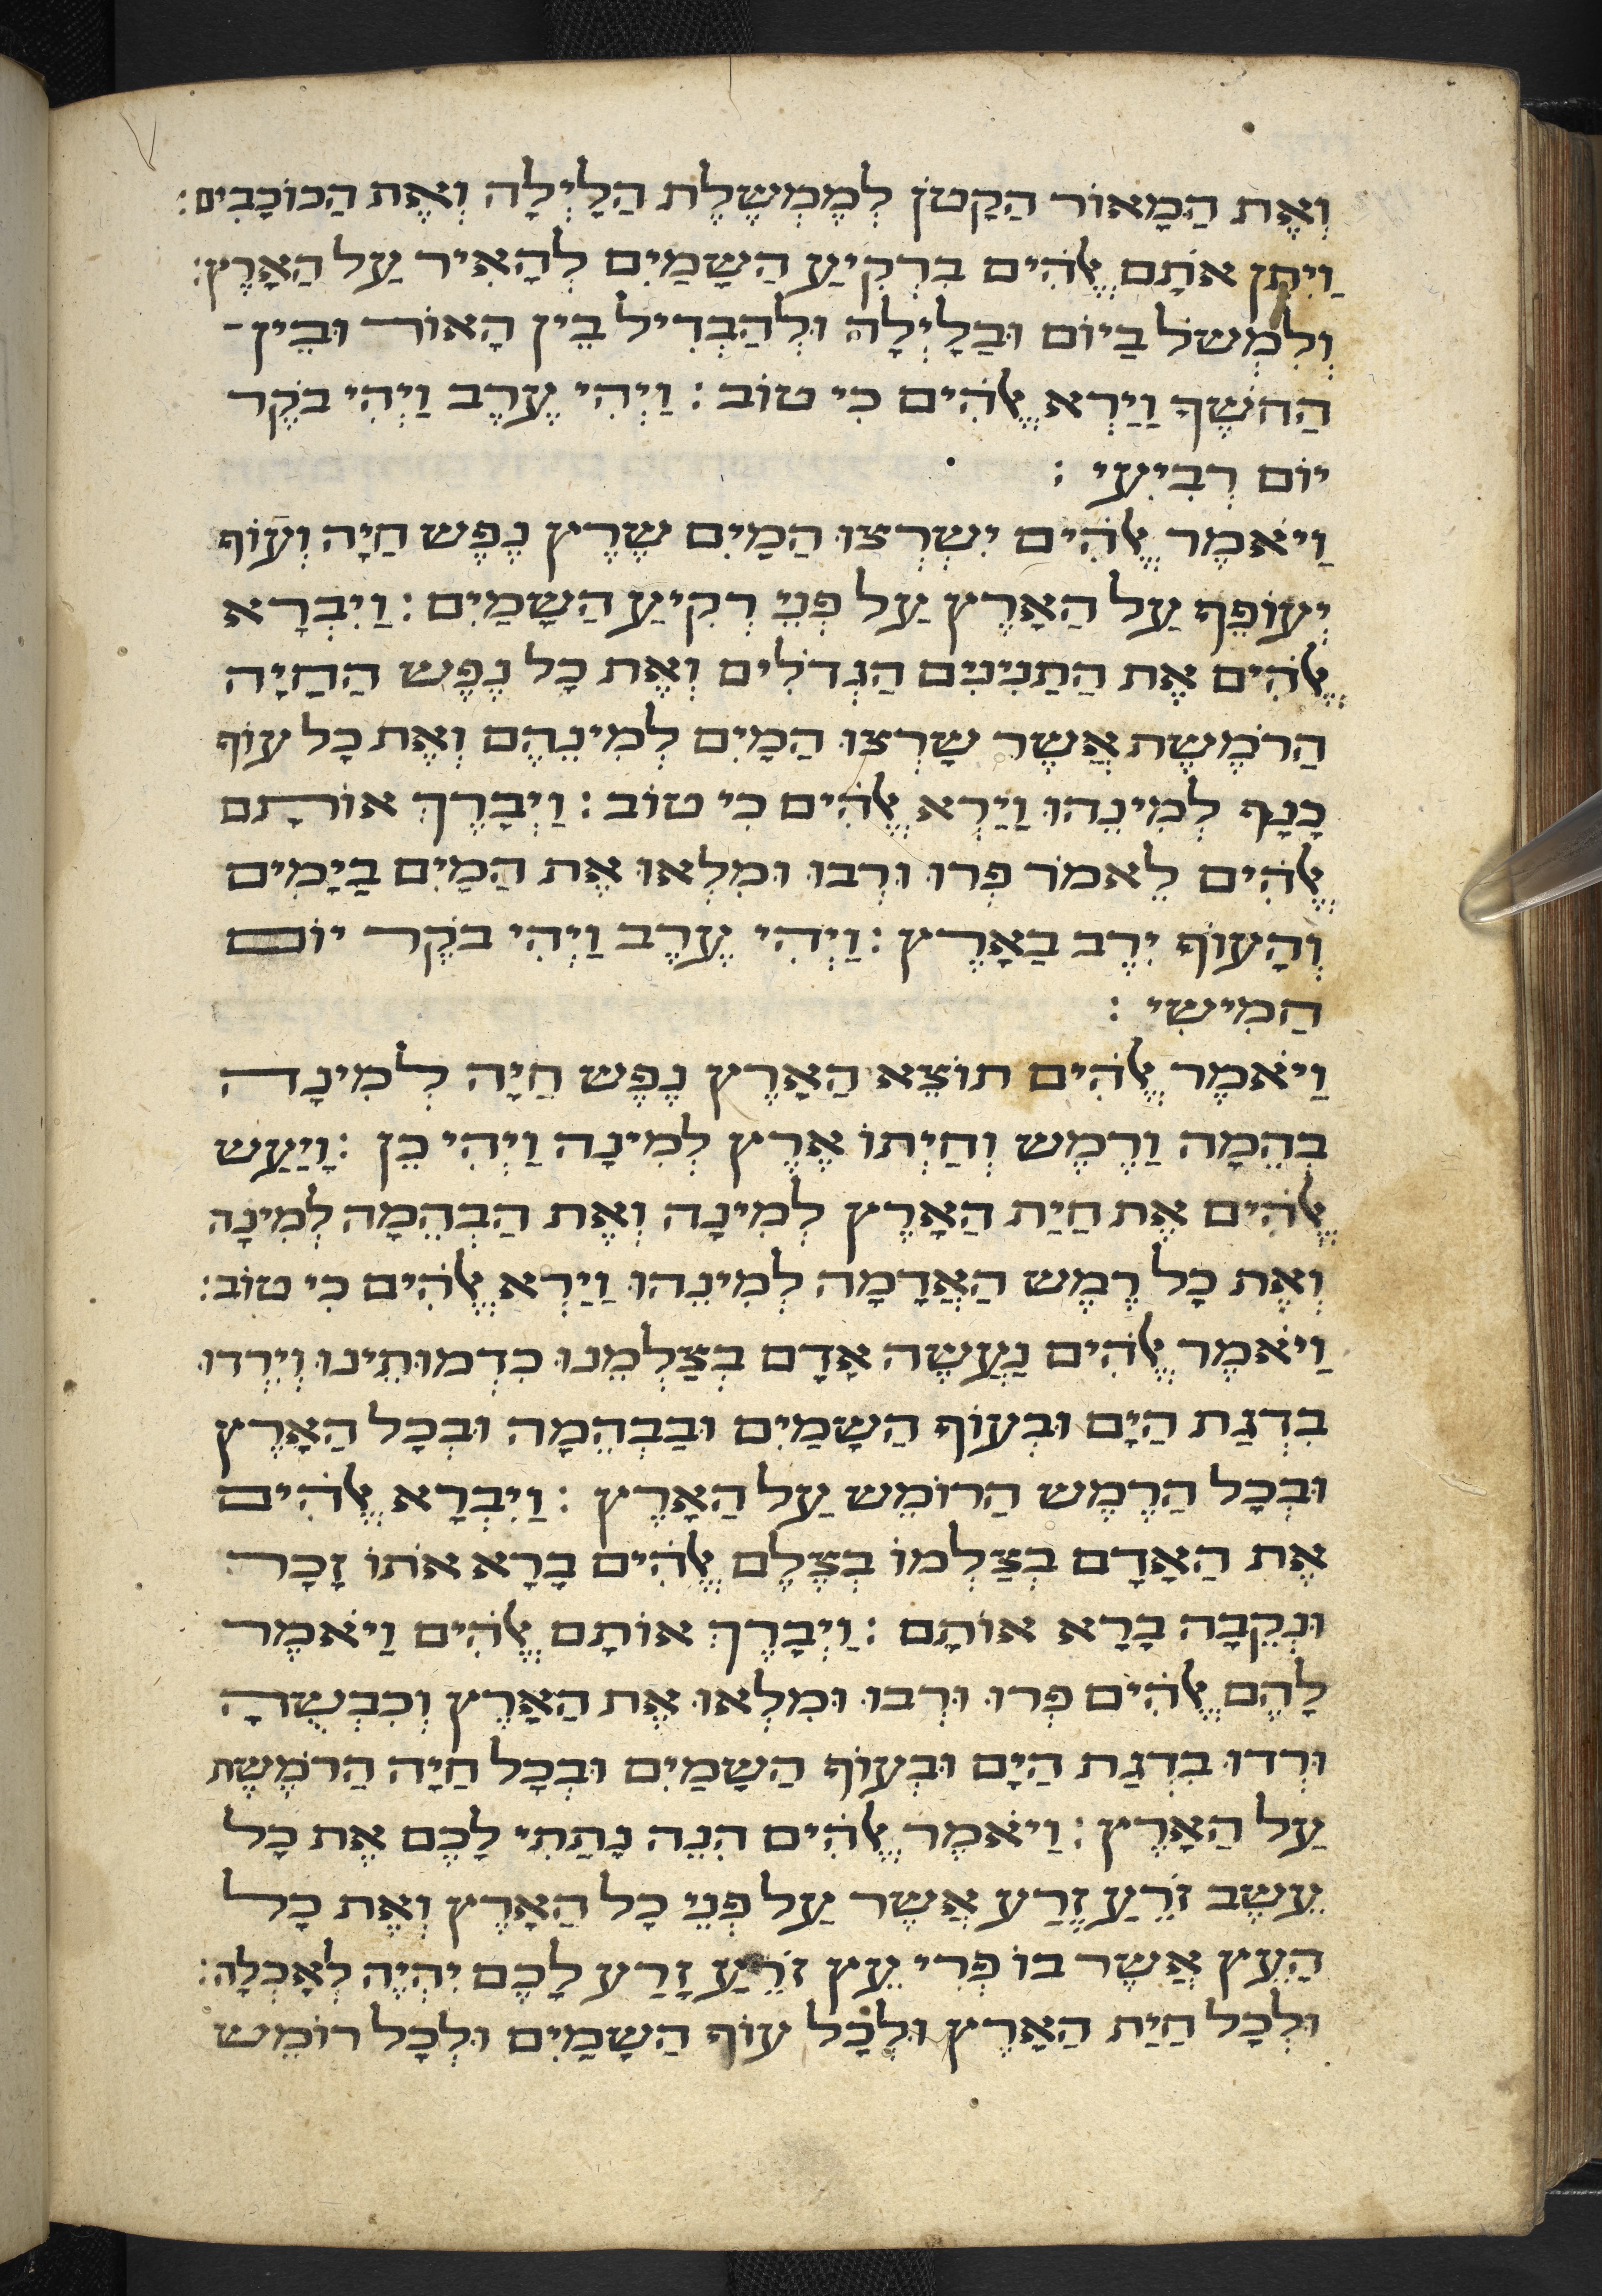 וְאֶת הַמָאוֹר הַקָטֹן לְמֶמְשֶלֶת הַלָיְלָה וְאֶת הַכוֹכָבִים׃
וַיִתֵן אֹתָם אֱלֹהִים בִרְקִיעַ הַשָמַיִם לְהָאִיר עַל הָאָרֶץ׃
וְלִמְשֹל בַיוֹם וּבַלָיְלָה וּלְהַבְדִיל בֵין הָאוֹר וּבֵין־
הַחשֶךְ וַיַרְא אֱלֹהִים כִי טוֹב׃ וַיְהִי עֶרֶב וַיְהִי בֹקֶר
יוֹם רְבִיעִי׃
וַיֹאמֶר אֱלֹהִים יִשְרְצוּ הַמַיִם שֶרֶץ נֶפֶש חַיָה וְעוֹף
יְעוֹפֵף עַל הַאָרֶץ עַל פְנֵי רְקִיעַ הַשָמַיִם׃ וַיִבְרָא
אֱלֹהִים אֶת הַתַנִינִים הַגְדֹלִים וְאֶת כָל נֶפֶש הַחַיָה
הַרֹמֶשֶת אֲשֶר שָרְצוּ הַמָיִם לְמִינֵהֶם וְאֶת כָל עוֹף
כָנָף לְמִינֵהוּ וַיַרְא אֱלֹהִים כִי טוֹב׃ וַיְבָרֶךְ אוֹתָם
אֱלֹהִים לֵאמֹר פְרוּ וּרְבוּ וּמִלְאוּ אֶת הַמַיִם בַיָמִים
וְהָעוֹף יִרֶב בַאָרֶץ׃ וַיְהִי עֶרֶב וַיְהִי בֹקֶר יוֹם
חַמִישִי׃
וַיֹאמֶר אֱלֹהִים תוֹצֵא הַאָרֶץ נֶפֶש חַיָה לְמִינָה
בְהֵמָה וַרֶמֶש וְחַיְתוֹ אֶרֶץ לְמִינָה וַיְהִי כֵן׃ וַיַעַש
אֱלֹהִים אֶת חַיַת הַאָרֶץ לְמִינָה וְאֶת הַבְהֵמָה לְמִינָה
וְאֶת כָל רֶמֶש הַאֲדָמָה לְמִינֵהוּ וַיַרְא אֱלֹהִים כִי טוֹב׃
וַיֹאמֶר אֱלֹהִים נַעֲשֶה אָדָם בְצַלְמֵנוּ כִדְמוּתֵינוּ וְיִרְדוּ
בִדְגַת הַיָם וּבְעוֹף הַשָמַיִם וּבַבְהֵמָה וּבְכָל הַאָרֶץ
וּבְכָל הַרֶמֶש הַרוֹמֵש עַל הַאָרֶץ׃ וַיִבְרָא אֱלֹהִים
אֶת הַאָדָם בְצַלְמוֹ בְצֶלֶם אֱלֹהִים בָרָא אֹתוֹ זָכָר
וּנְקֵבָה בָרָא אוֹתָם׃ וַיְבָרֶךְ אוֹתָם אֱלֹהִים וַיֹאמֶר
לָהֶם אֱלֹהִים פְרוּ וּרְבוּ וּמִלְאוּ אֶת הַאָרֶץ וְכִבְשֻהָ
וּרְדוּ בִדְגַת הַיָם וּבְעוֹף הַשָמַיִם וּבְכָל חַיָה הַרֹמֶשֶת
עַל הַאָרֶץ׃ וַיֹאמֶר אֱלֹהִים הִנֵה נָתַתִי לָכֶם אֶת כָל
עֵשֶב זֹרֵעַ זֶרַע אֲשֶר עַל פְנֵי כָל הַאָרֶץ וְאֶת כָל
הַעֵץ אֲשֶר בוֹ פְרִי עֵץ זֹרֵעַ זָרַע לָכֶם יִהְיֶה לְאָכְלָה׃
וּלְכָל חַיַת הַאָרֶץ וּלְכָל עוֹף הַשָמַיִם וּלְכָל רוֹמֵש